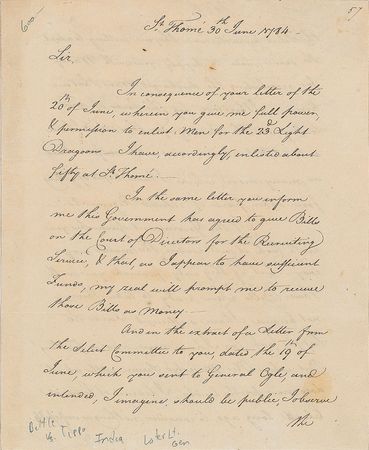 57
600
St. Thomé 30th June 1784.
Sir.
In consequence of your letter of the
20th of June, wherein you give me full power,
& permission to enlist Men for the 23d Light
Dragoons I have, accordingly, enlisted about
fifty at St. Thomé.
In the same letter you inform
me this Government has agreed to give Bills
on the Court of Directors for the Recruiting
Service, & that, as I appear to have sufficient
Funds, my zeal will prompt me to receive
those Bills as Money.
And in the extract of a Letter from
the Select Committee to you, dated the 19th of
June, which you sent to General Ogle, and
intended, I imagine, should be public, I observe
the
Battle
Tippo
India
Later Lt.
Gen